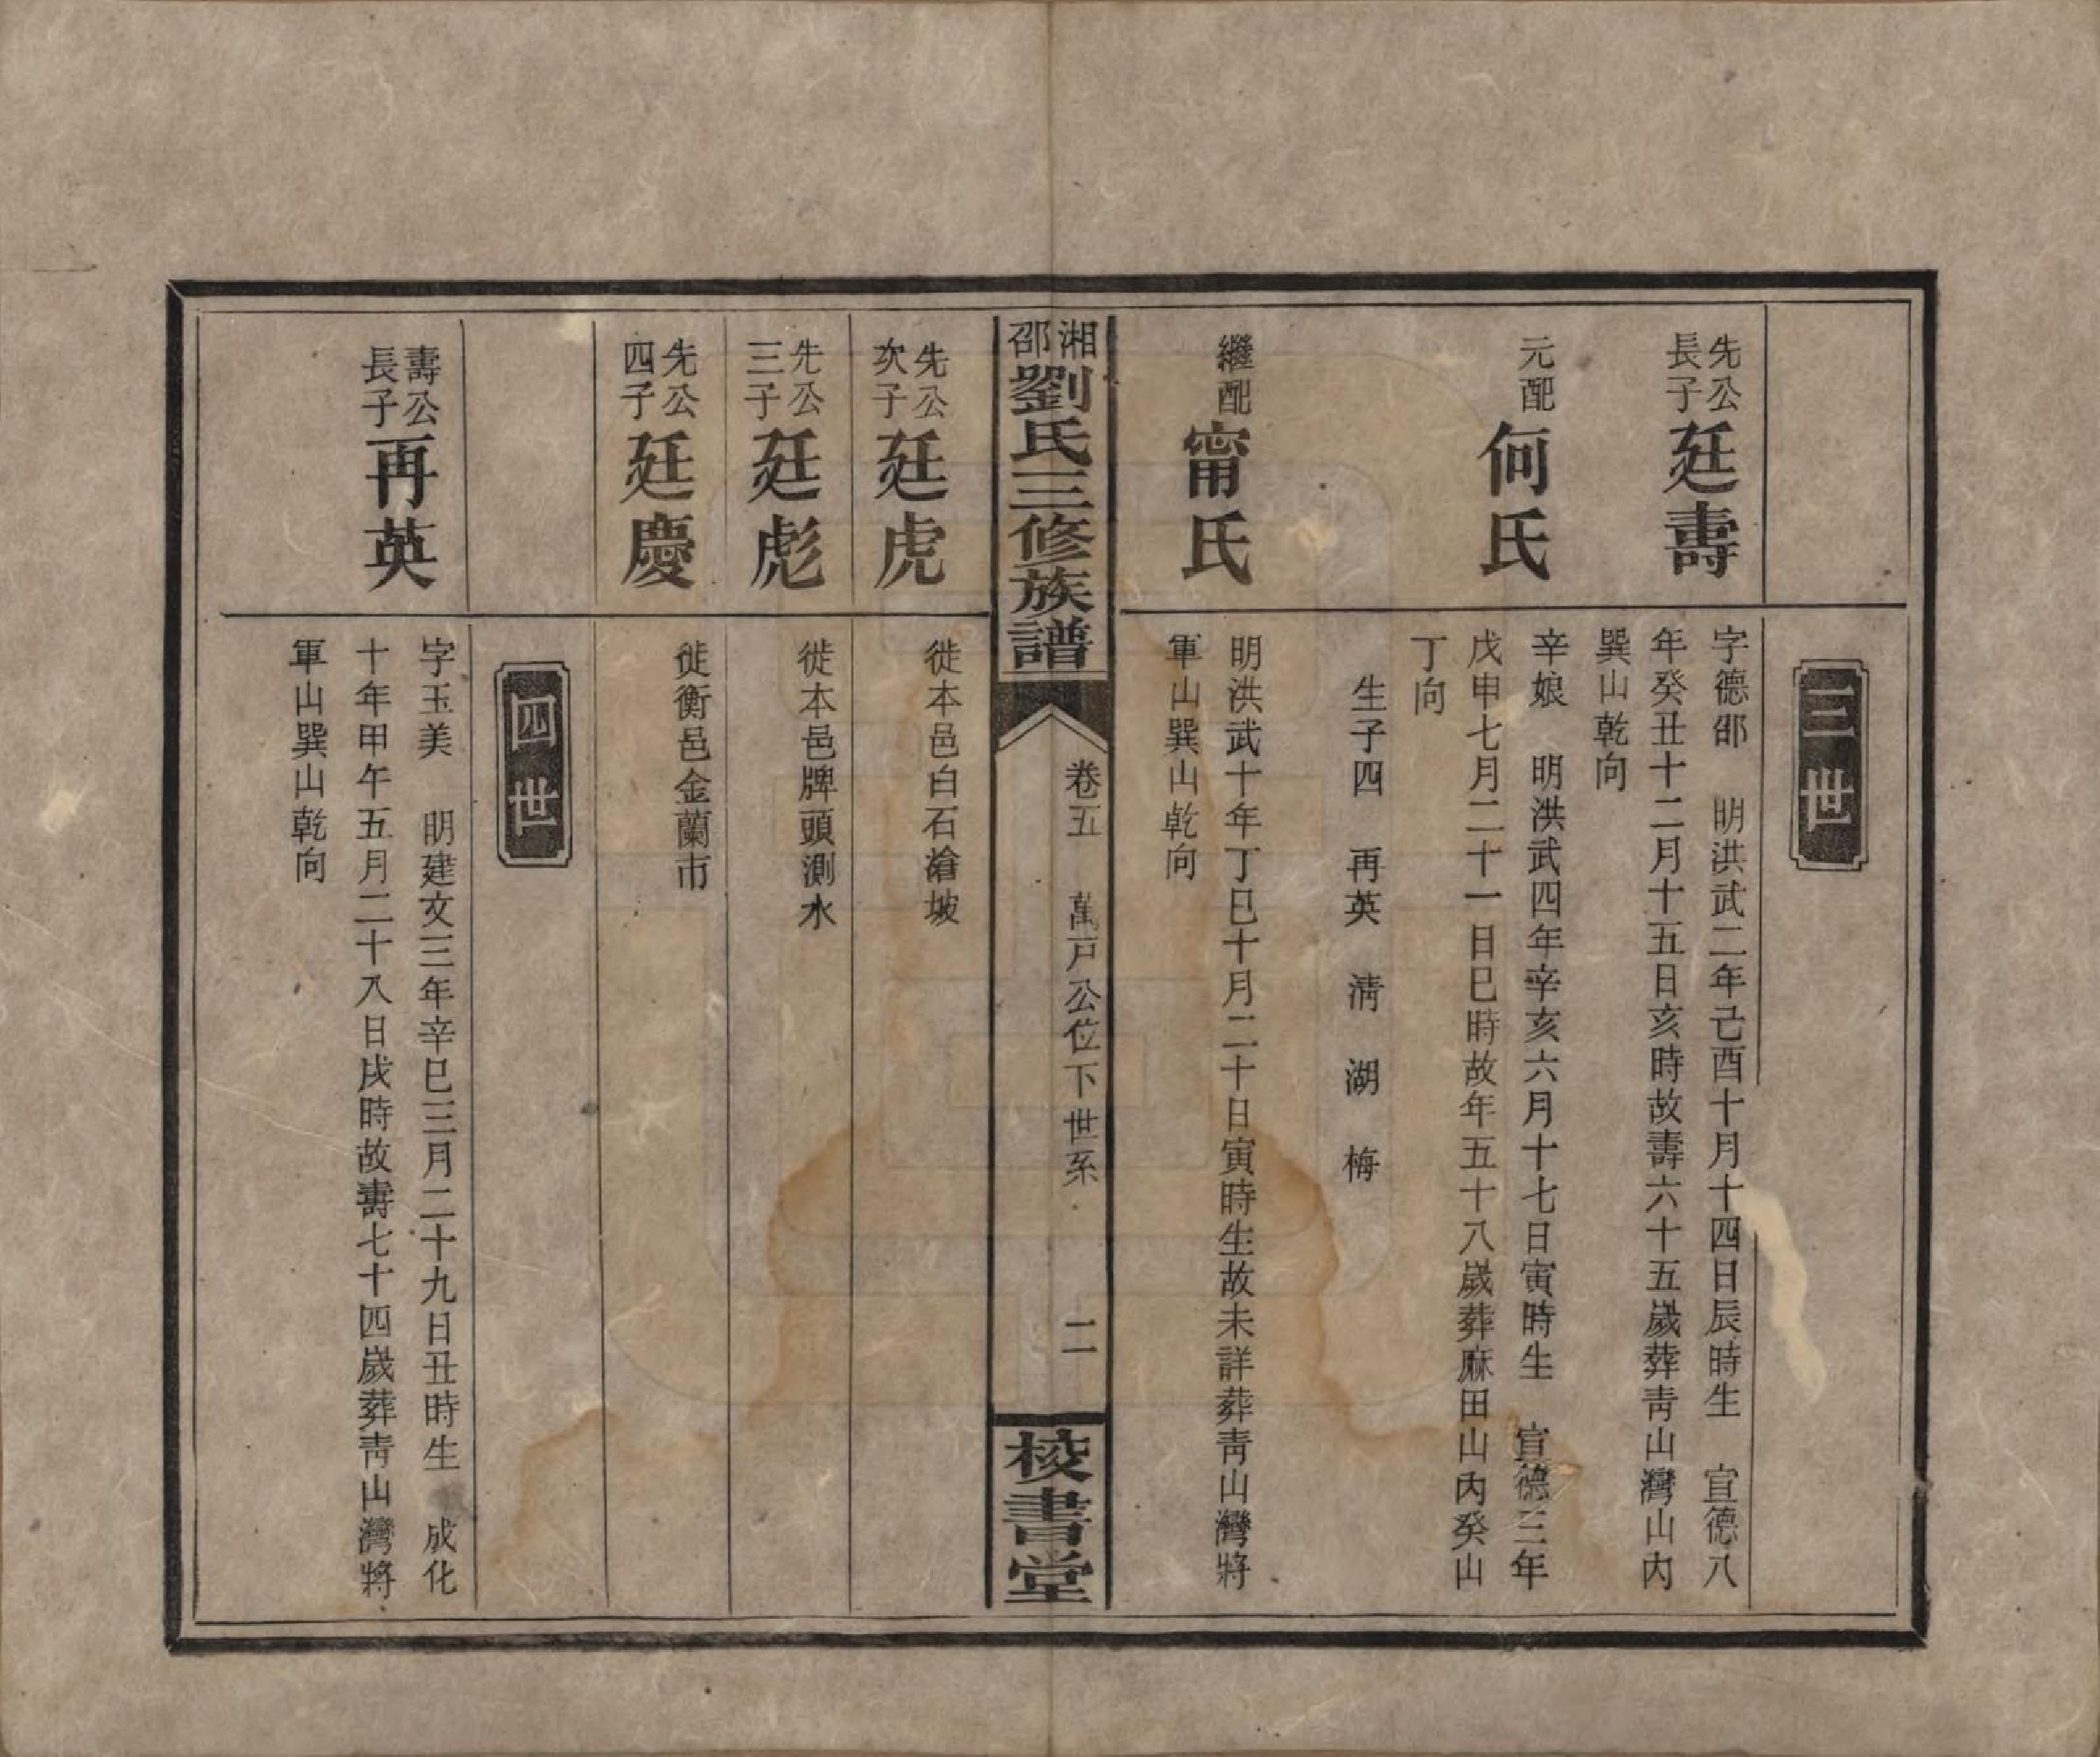 三世
先公
長子
廷壽
字德邵　明洪武二年己酉十月十四日辰時生　宣德八
年癸丑十二月十五日亥時故壽六十五歲葬靑山灣山內
巽山乾向
元配
何氏
辛娘　明洪武四年辛亥六月十七日寅時生　宣德三年
戊申七月二十一日巳時故年五十八歲葬麻田山內癸山
丁向
生子四　再英　淸　湖　梅
繼配
甯氏
明洪武十年丁巳十月二十日寅時生故未詳葬靑山灣將
軍山巽山乾向
湘邵劉氏三修族譜
卷五　萬戶公位下世系　二
校書堂
先公
次子
廷虎
徙本邑白石滄坡
先公
三子
廷彪
徙本邑牌頭測水
先公
四子
廷慶
徙衡邑金蘭市
四世
壽公
長子
再英
字玉美　明建文三年辛巳三月二十九日丑時生　成化
十年甲午五月二十八日戌時故壽七十四歲葬靑山灣將
軍山巽山乾向